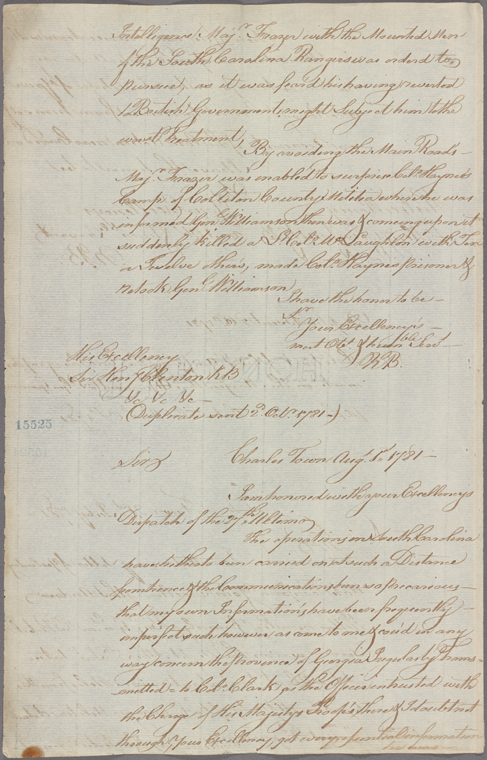 Intelligence: Majr. Frazer with the Mounted Men
of the South Carolina Rangers was order'd to
pursue, as it was fear'd his having reverted
to British Government, might Subject him to the
worst Treatment.
By avoiding the Main Roads -
Majr. Frazer was enabled to surprise Col. Haynes
Camp of Colleton County Militia where he was
informed Genl. Williamson then was & coming upon it
suddenly killed a Lt. Col. McLaughlin with Ten
or Twelve others, made Col. Haynes prisoner &
retook Genl. Williamson
I have the honor to be -
Sir
Your Excellency's
most Obt. & humble Servt.
N B.
His Excellency
Sir Henry Clinton K B
&c &c &c -
(Duplicate sent 2d. Octr. 1781 -)
15525
Sir,
Charles Town Augt. 1st. 1781 -
I am honored with your Excellencys
Dispatch of the 27th. Ultimo
The operations in South Carolina
have hitherto been carried on at such a Distance
from hence, & the Communications been so precarious -
that my own Informations have been frequently -
imperfect, such however as came to me & cou'd in any
way concern the Province of Georgia I regularly trans-
mitted to Col. Clark, as the Officer entrusted with
the Charge of His Majesty's Troops there & I doubt not
through your Excellency got every essential information